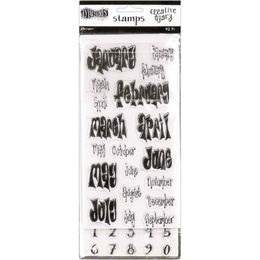 DYLUSIONS stamps creative dyary
january january
february
march
april february
march april
may October
may june june
November
August December
july july September
1 2 3 4 5
6 7 8 9 0